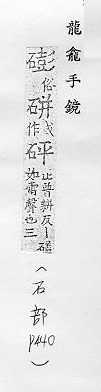 龍龕手鏡
俗硑或作砰正普耕反丨磕如雷聲也三
(石部P440)